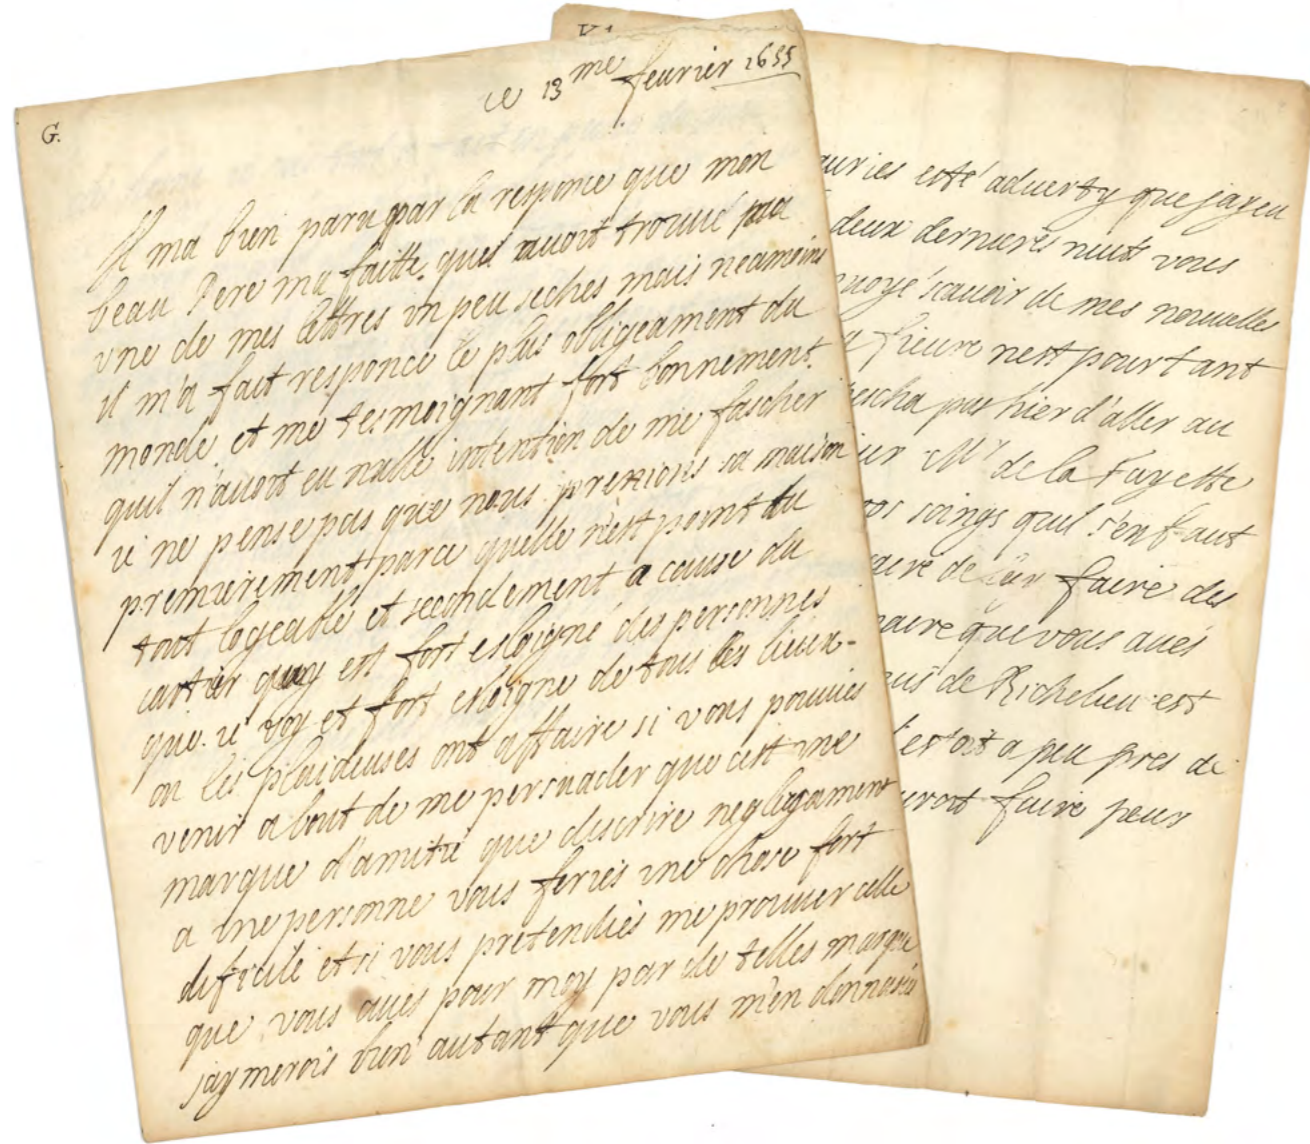 G.
ce 13 me feurier 1655
Il ma bien paru par la responce que mon
beau Pere ma faitte quil auoit trouué
vne de mes lettres vn peu seches mais neamoins
il m'a fait responce le plus obligeament du
monde et me tesmoignant fort bonnement
quil n'auoit eu nulle intention de me fascher
ie ne pense pas que nous prenions sa maison
premierement parce quelle n'est point du
tout logeable et secondement a cause du
cartier quy est fort esloigné des personnes
que ie voy et fort esloigné de tous les lieux
ou les plaideuses ont affaire si vous pouuiés
venir a bout de me persuader que cest vne
marque d'amitié que descrire negligament
a vne personne vous feriés vne chose fort
dificile et si vous pretendiés me prouuer celle
que vous aués pour moy par de telles marque
jaymerois bien autant que vous m'en donnasiés
auries esté aduerty que jayeu
deux dernieres nuits vous
enuoyé scauoir de mes nouuelles
fieure nest pourtant
pas hier d'aller au
Mr de la Fayette
vos soings quil s'en faut
faire des
que vous aués
de Richelieu est
estoit a peu pres de
faire peur